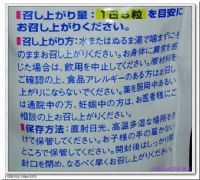 召し上がり量：1日5粒を目安に
お召し上がりください。
■召し上がり方：水またはぬるま湯で噛まずにそ
のままお召し上がりください。お身体に異常を感
じた場合は、飲用を中止してください。原材料を
ご確認の上、食品アレルギーのある方はお召し
上がりにならないでください。薬を服用中あるい
は通院中の方、妊娠中の方は、お医者様にご
相談の上お召し上がりください。
■保存方法：直射日光、高温多湿な場所を
さけて保管してください。お子様の手の届かない
ところで保管してください。開封後はしっかり開
封口を閉め、なるべく早くお召し上がりください。